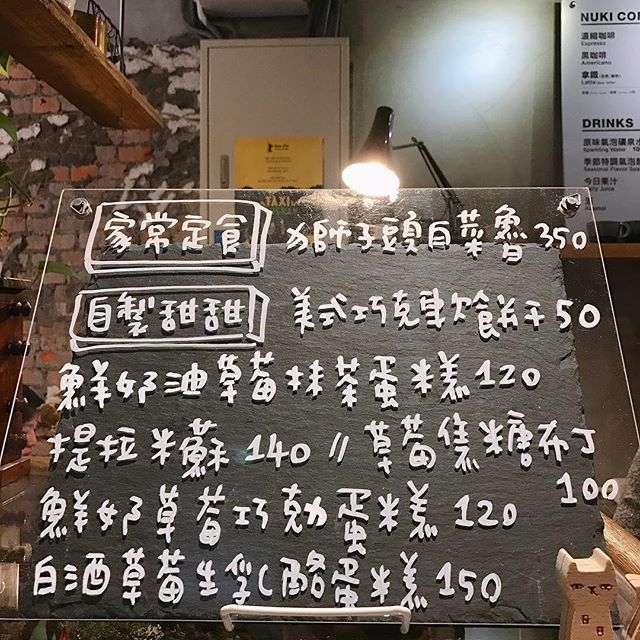 家常定食 ㄉ獅子頭白菜魯 350
自製甜甜 美式巧克軟餅干 50
鮮奶油草莓抹茶蛋糕 120
提拉米蘇 140 // 草莓焦糖布丁
100
鮮奶草莓巧克力蛋糕 120
白酒草莓生乳酪蛋糕 150
濃縮咖啡
Espresso
黑咖啡
Americano
拿鐵
Latte
DRINKS
原味氣泡礦泉水
Sparkling Water
季節特調氣泡
今日果汁
TAXI